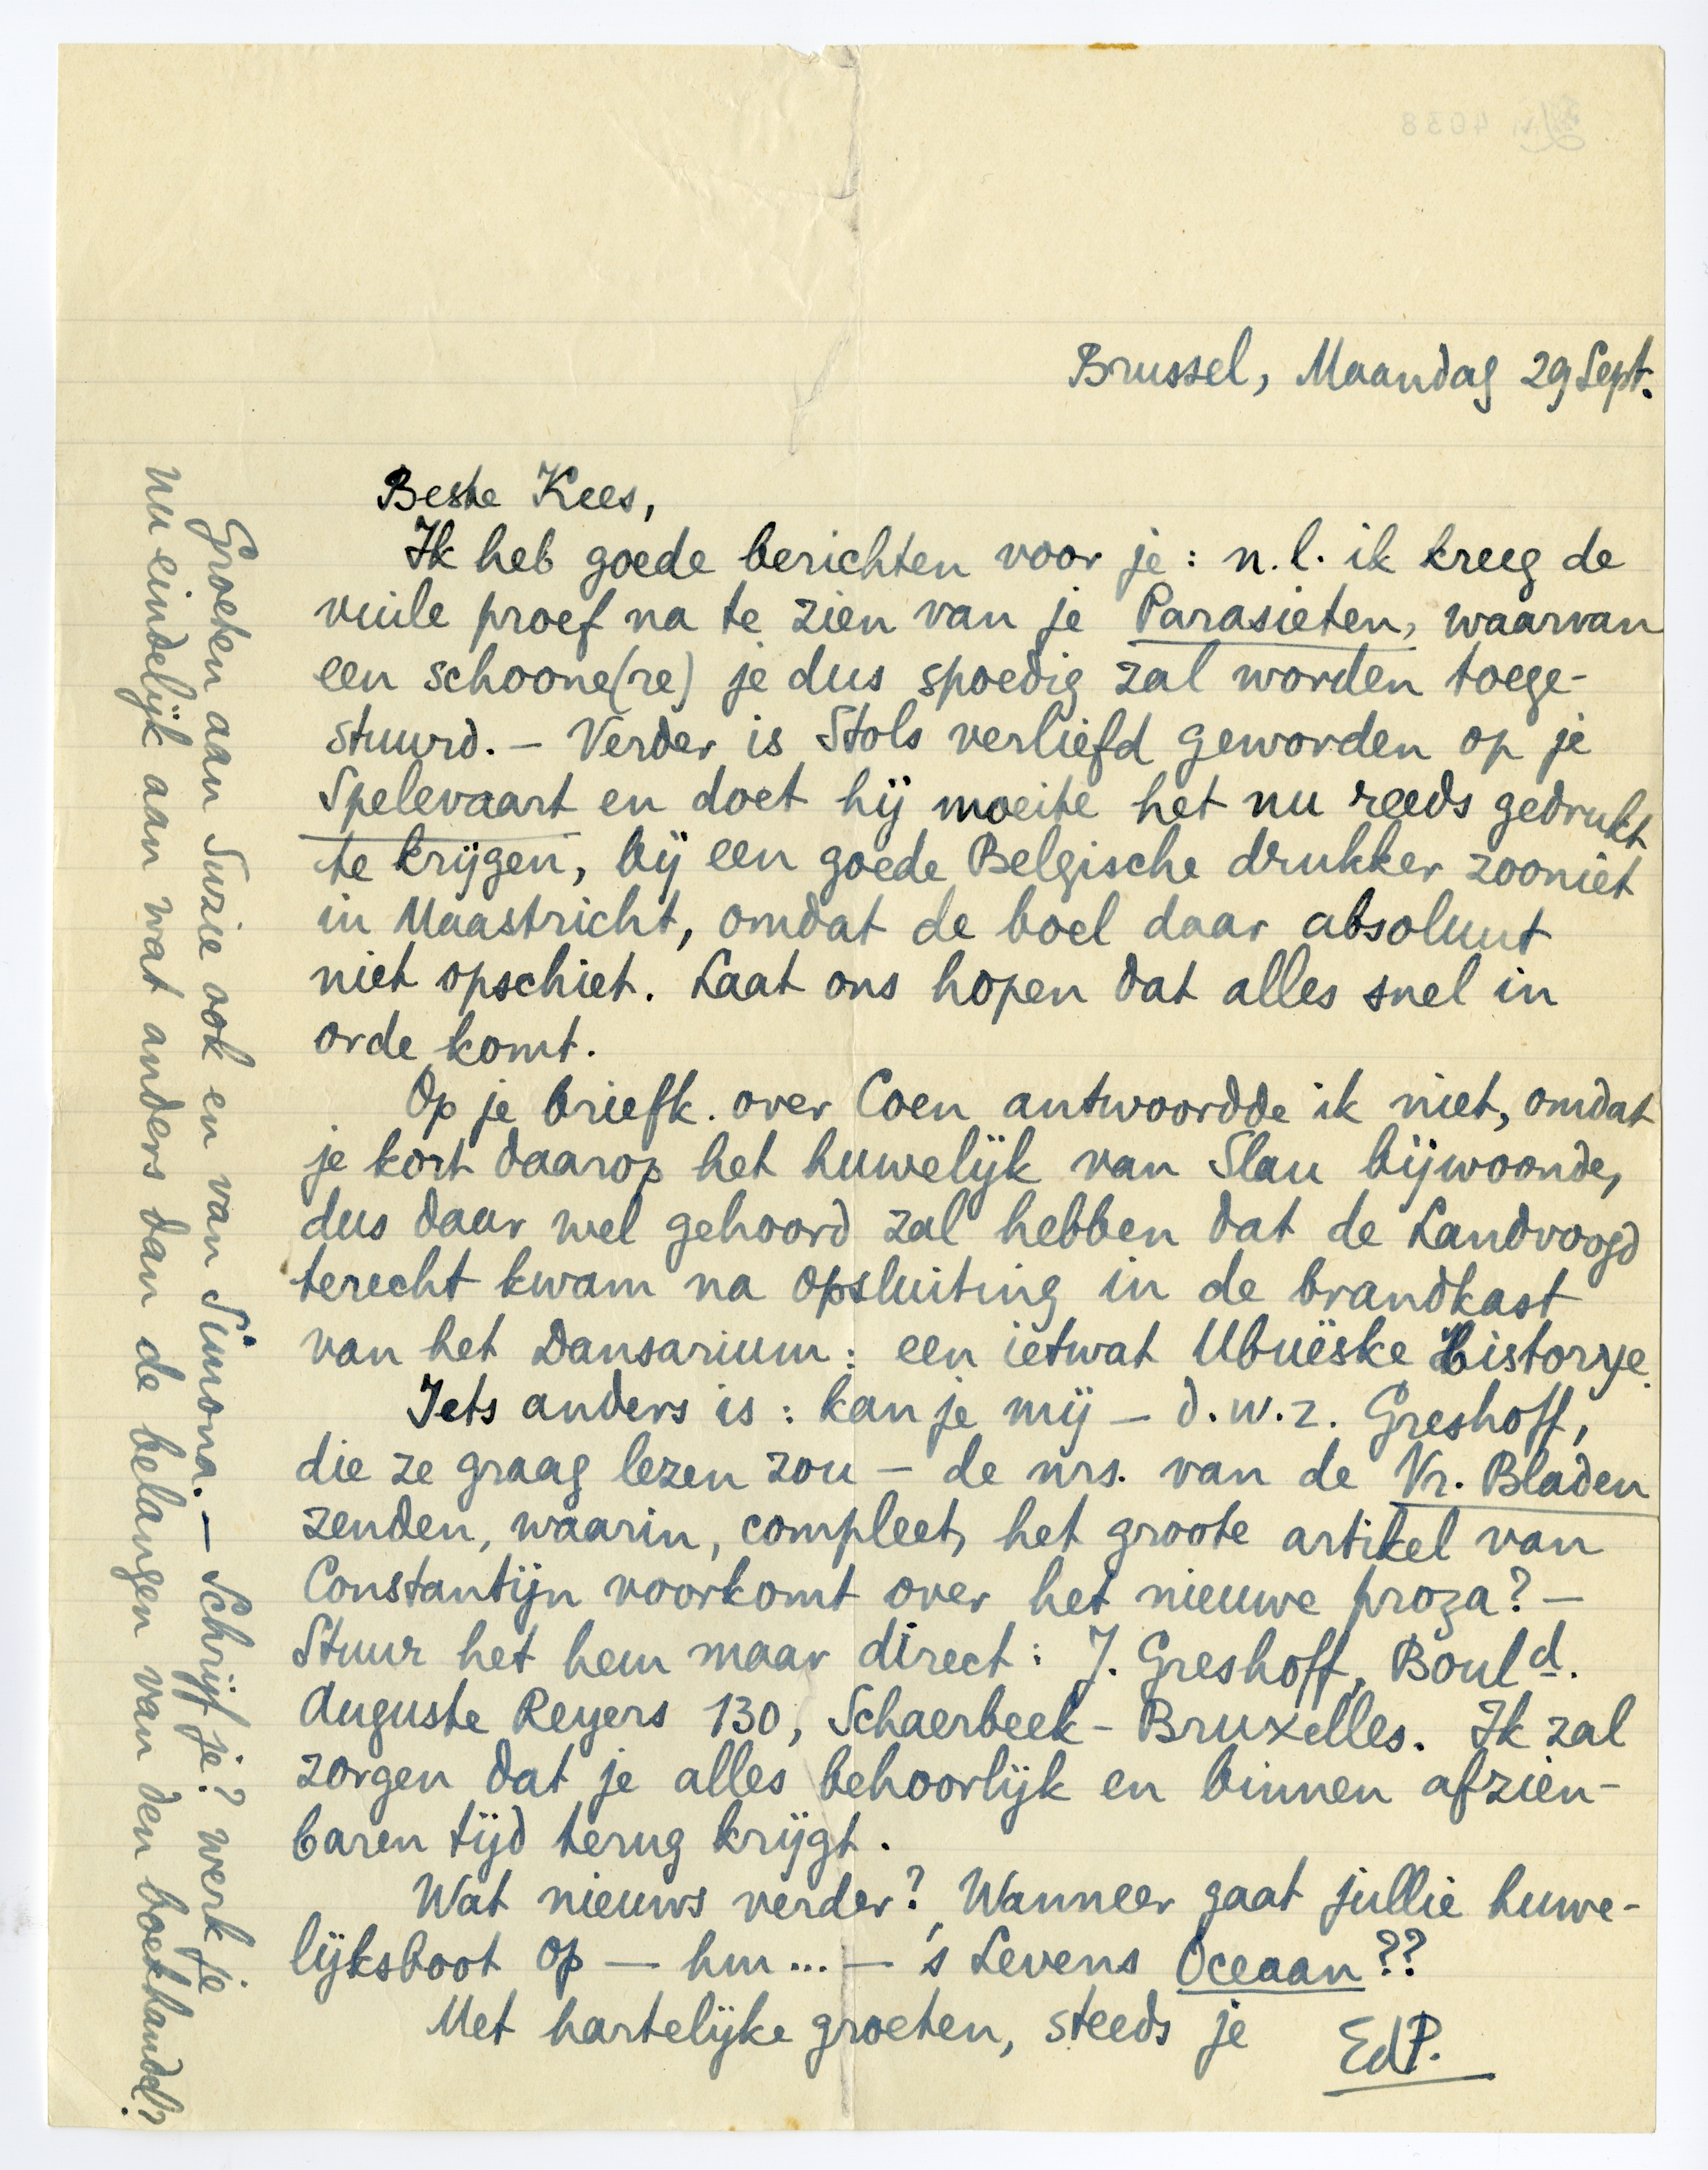 Brussel, Maandag 29 Sept.
Beste Kees,
Ik heb goede berichten voor je: n.l. ik kreeg de
vuile proef na te zien van je Parasieten, waarvan
een schoone(re) je dus spoedig zal worden toege-
stuurd. — Verder is Stols verliefd geworden op je
Spelevaart en doet hij moeite het nu reeds gedrukt
te krijgen, bij een goede Belgische drukker zooniet
in Maastricht, omdat de boel daar absoluut
niet opschiet. Laat ons hopen dat alles snel in
orde komt.
Op je briefk. over Coen antwoordde ik niet, omdat
je kort daarop het huwelijk van Slau bijwoonde,
dus daar wel gehoord zal hebben dat de Landvoogd
terecht kwam na opsluiting in de brandkast
van het Dansarium: een ietwat Ubuëske Historye.
Iets anders is: kan je mij — d.w.z. Greshoff,
die ze graag lezen zou — de nrs. van de Vr. Bladen
zenden, waarin, compleet, het groote artikel van
Constantijn voorkomt over het nieuwe proza? —
Stuur het hem maar direct: J. Greshoff, Bould.
Auguste Reyers 130, Schaerbeek - Bruxelles. Ik zal
zorgen dat je alles behoorlijk en binnen afzien-
baren tijd terug krijgt.
Wat nieuws verder? Wanneer gaat jullie huwe-
lijksboot op — hm... — 's Levens Oceaan??
Met hartelijke groeten, steeds je
EdP.
Groeten aan Suzie ook en van Simona. — Schrijf je? werk je
nu eindelijk aan wat anders dan de belangen van den boekhandel?
4038